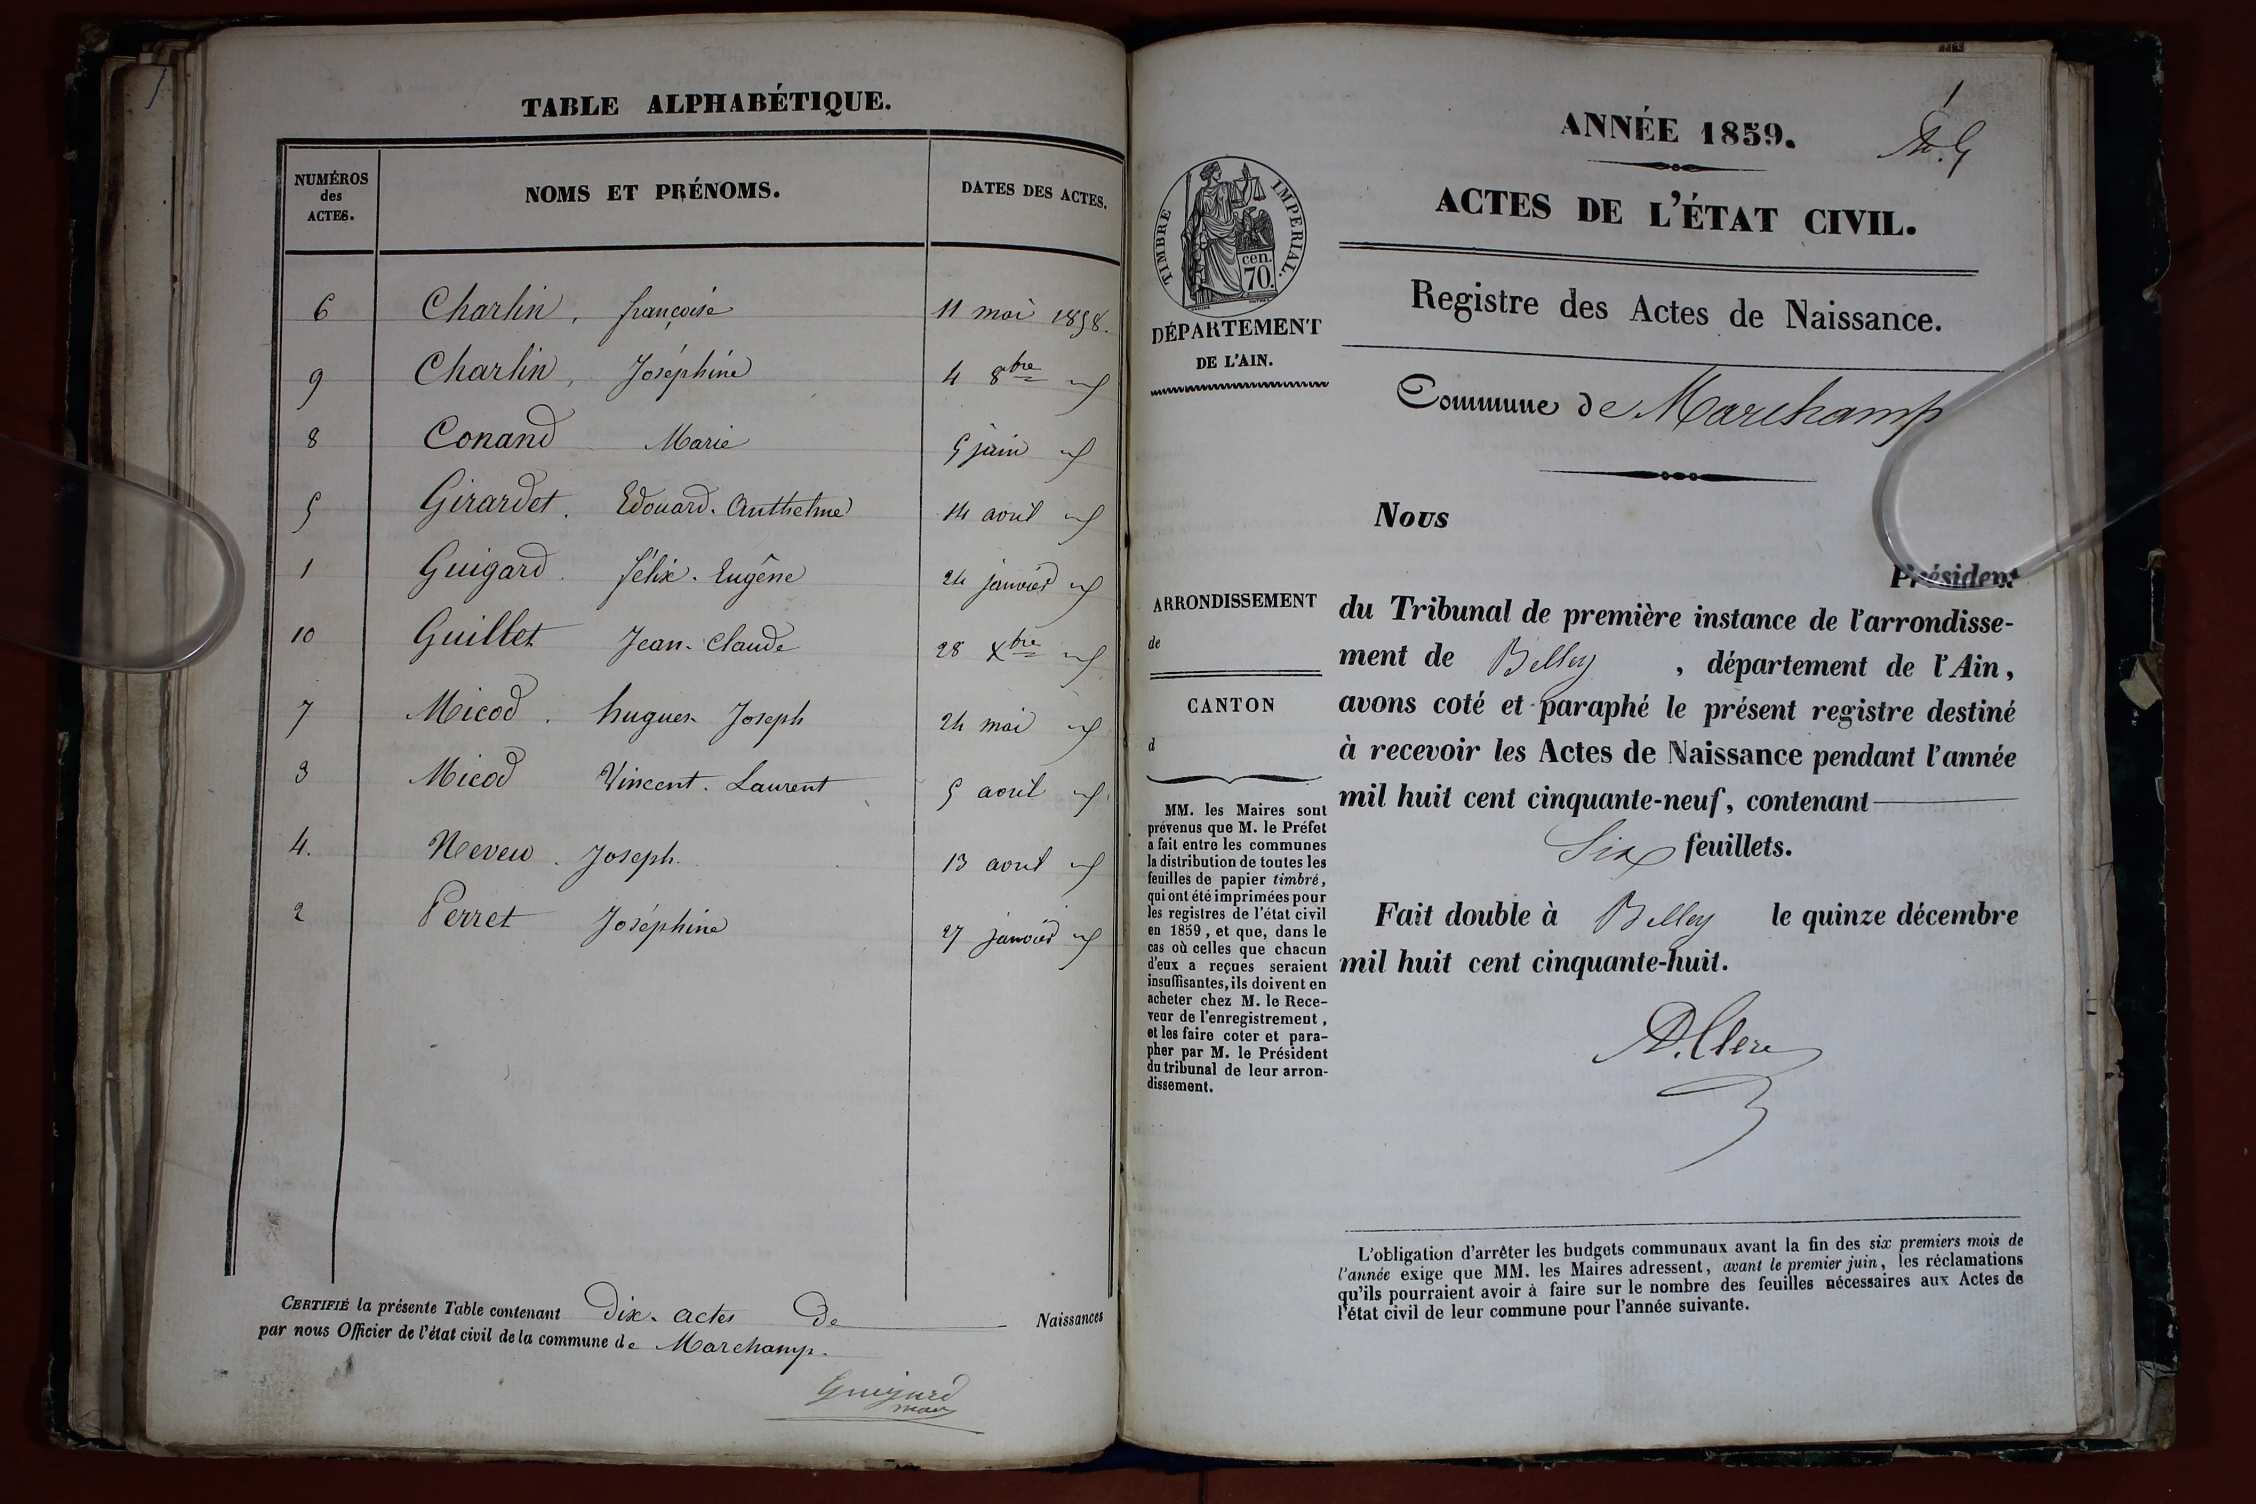 TABLE ALPHABÉTIQUE.
NUMÉROS des ACTES. NOMS ET PRÉNOMS. DATES DES ACTES.
6 Charlin, françoise 11 mai 1858.
9 Charlin, Joséphine 4 8bre
8 Conand Marie 5 juin
5 Girardet. Edouard. Anthelme 14 avril
1 Guigard. félix. Eugêne 24 janvier
10 Guillet Jean. Claude 28 Xbre
7 Micod. hugues. Joseph 24 mai
3 Micod Vincent. Laurent 5 avril
4. Neveu. Joseph. 13 avril
2 Perret Joséphine 27 janvier
CERTIFIÉ la présente Table contenant Dix. actes De Naissances
par nous Officier de l'état civil de la commune de Marchamp.
Guigard
maire
1
ANNÉE 1859.
ACTES DE L'ÉTAT CIVIL.
TIMBRE IMPERIAL.
cen.
70.
DÉPARTEMENT
DE L'AIN.
Registre des Actes de Naissance.
Commune de Marchamp
Nous
Président
du Tribunal de première instance de l'arrondisse-
ment de Belley, département de l'Ain,
avons coté et paraphé le présent registre destiné
à recevoir les Actes de Naissance pendant l'année
mil huit cent cinquante-neuf, contenant
Six feuillets.
Fait double à Belley le quinze décembre
mil huit cent cinquante-huit.
ARRONDISSEMENT
de
CANTON
d
MM. les Maires sont
prévenus que M. le Préfet
a fait entre les communes
la distribution de toutes les
feuilles de papier timbré,
qui ont été imprimées pour
les registres de l'état civil
en 1859, et que, dans le
cas où celles que chacun
d'eux a reçues seraient
insuffisantes, ils doivent en
acheter chez M. le Rece-
veur de l'enregistrement,
et les faire coter et para-
pher par M. le Président
du tribunal de leur arron-
dissement.
L'obligation d'arrêter les budgets communaux avant la fin des six premiers mois de
l'année exige que MM. les Maires adressent, avant le premier juin, les réclamations
qu'ils pourraient avoir à faire sur le nombre des feuilles nécessaires aux Actes de
l'état civil de leur commune pour l'année suivante.